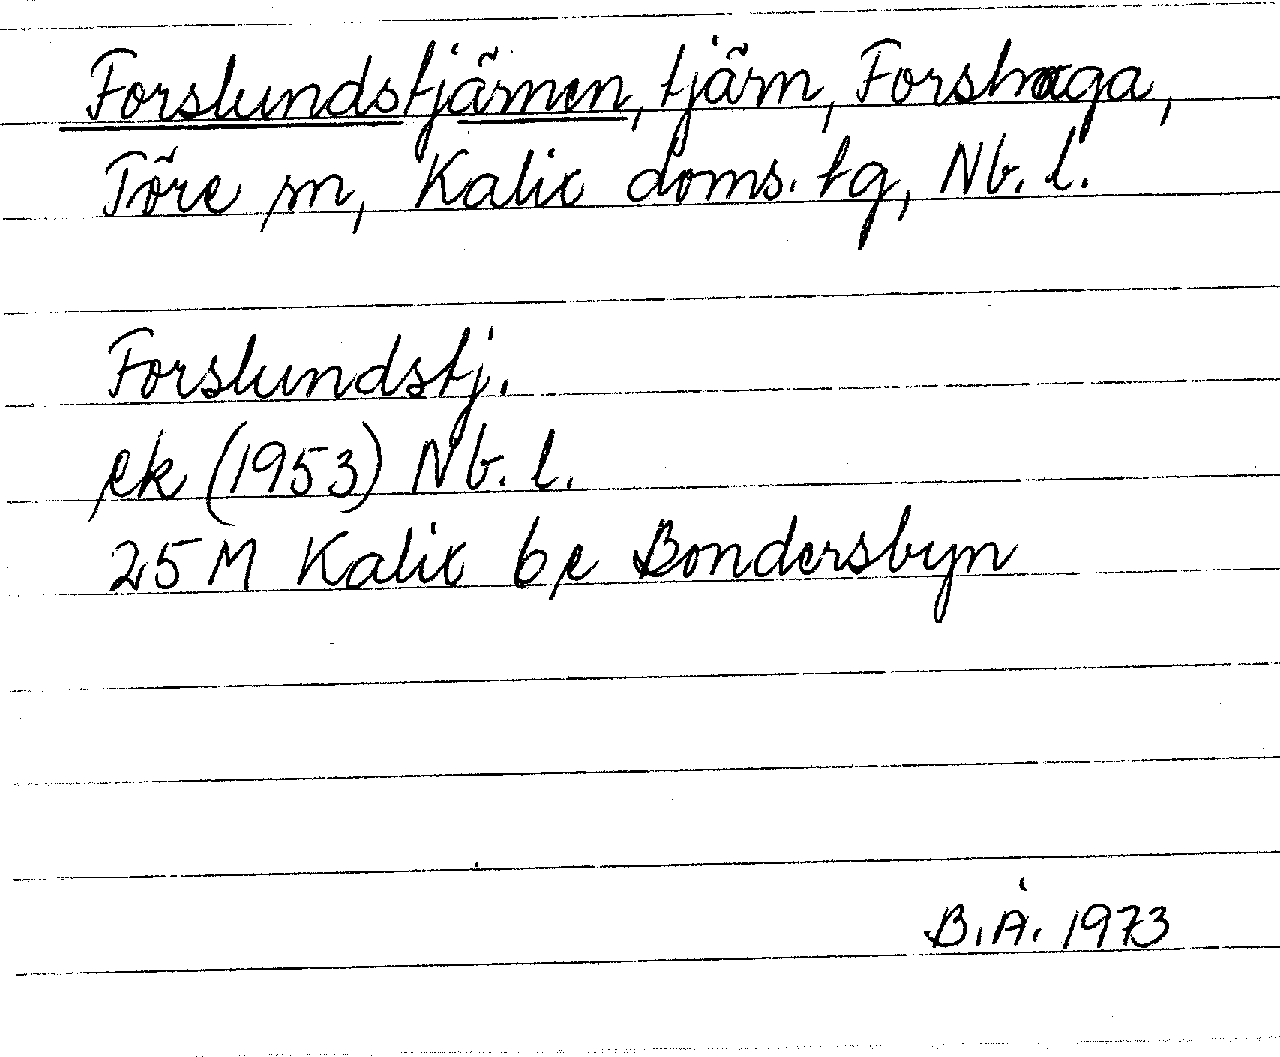 Forslundstjärnen, tjärn, Forshaga,
Töre sn, Kalix doms. tg, Nb. l.
Forslundstj.
ek (1953) Nb. l.
25 M Kalix 6 e Bondersbyn
B.Å. 1973